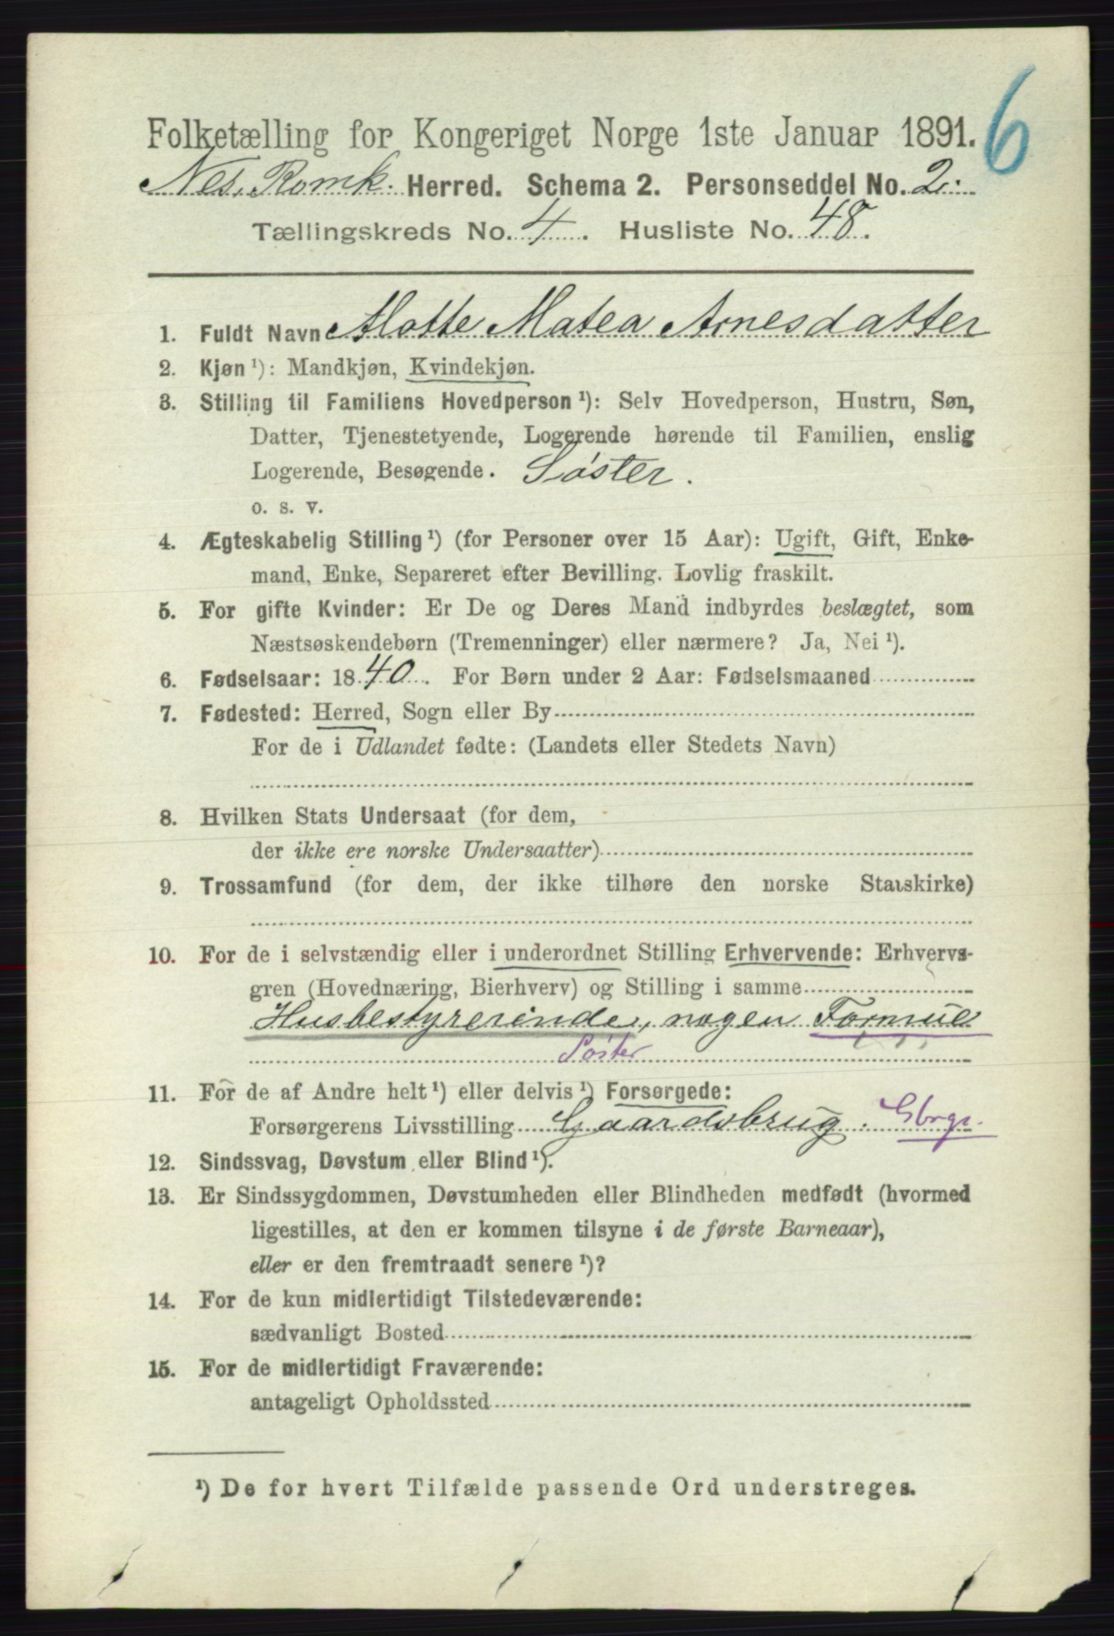 6
Folketælling for Kongeriget Norge 1ste Januar 1891.
Nes. Romk. Herred. Schema 2. Personseddel No. 2.
Tællingskreds No. 4. Husliste No. 48.
1. Fuldt Navn Matea Arnesdatter
2. Kjøn ¹): Mandkjøn, Kvindekjøn.
3. Stilling til Familiens Hovedperson ¹): Selv Hovedperson, Hustru, Søn,
Datter, Tjenestetyende, Logerende hørende til Familien, enslig
Logerende, Besøgende. Søster.
o. s. v.
4. Ægteskabelig Stilling ¹) (for Personer over 15 Aar): Ugift, Gift, Enke-
mand, Enke, Separeret efter Bevilling. Lovlig fraskilt.
5. For gifte Kvinder: Er De og Deres Mand indbyrdes beslægtet, som
Næstsøskendebørn (Tremenninger) eller nærmere? Ja, Nei ¹).
6. Fødselsaar: 1840. For Børn under 2 Aar: Fødselsmaaned
7. Fødested: Herred, Sogn eller By
For de i Udlandet fødte: (Landets eller Stedets Navn)
8. Hvilken Stats Undersaat (for dem,
der ikke ere norske Undersaatter)
9. Trossamfund (for dem, der ikke tilhøre den norske Statskirke)
10. For de i selvstændig eller i underordnet Stilling Erhvervende: Erhvervs-
gren (Hovednæring, Bierhverv) og Stilling i samme
Husbestyrerinde, nogen Formue
Søster
11. For de af Andre helt ¹) eller delvis ¹) Forsørgede:
Forsørgerens Livsstilling Gaardsbrug. Gbrgr.
12. Sindssvag, Døvstum eller Blind ¹).
13. Er Sindssygdommen, Døvstumheden eller Blindheden medfødt (hvormed
ligestilles, at den er kommen tilsyne i de første Barneaar),
eller er den fremtraadt senere ¹)?
14. For de kun midlertidigt Tilstedeværende:
sædvanligt Bosted
15. For de midlertidigt Fraværende:
antageligt Opholdssted
¹) De for hvert Tilfælde passende Ord understreges.